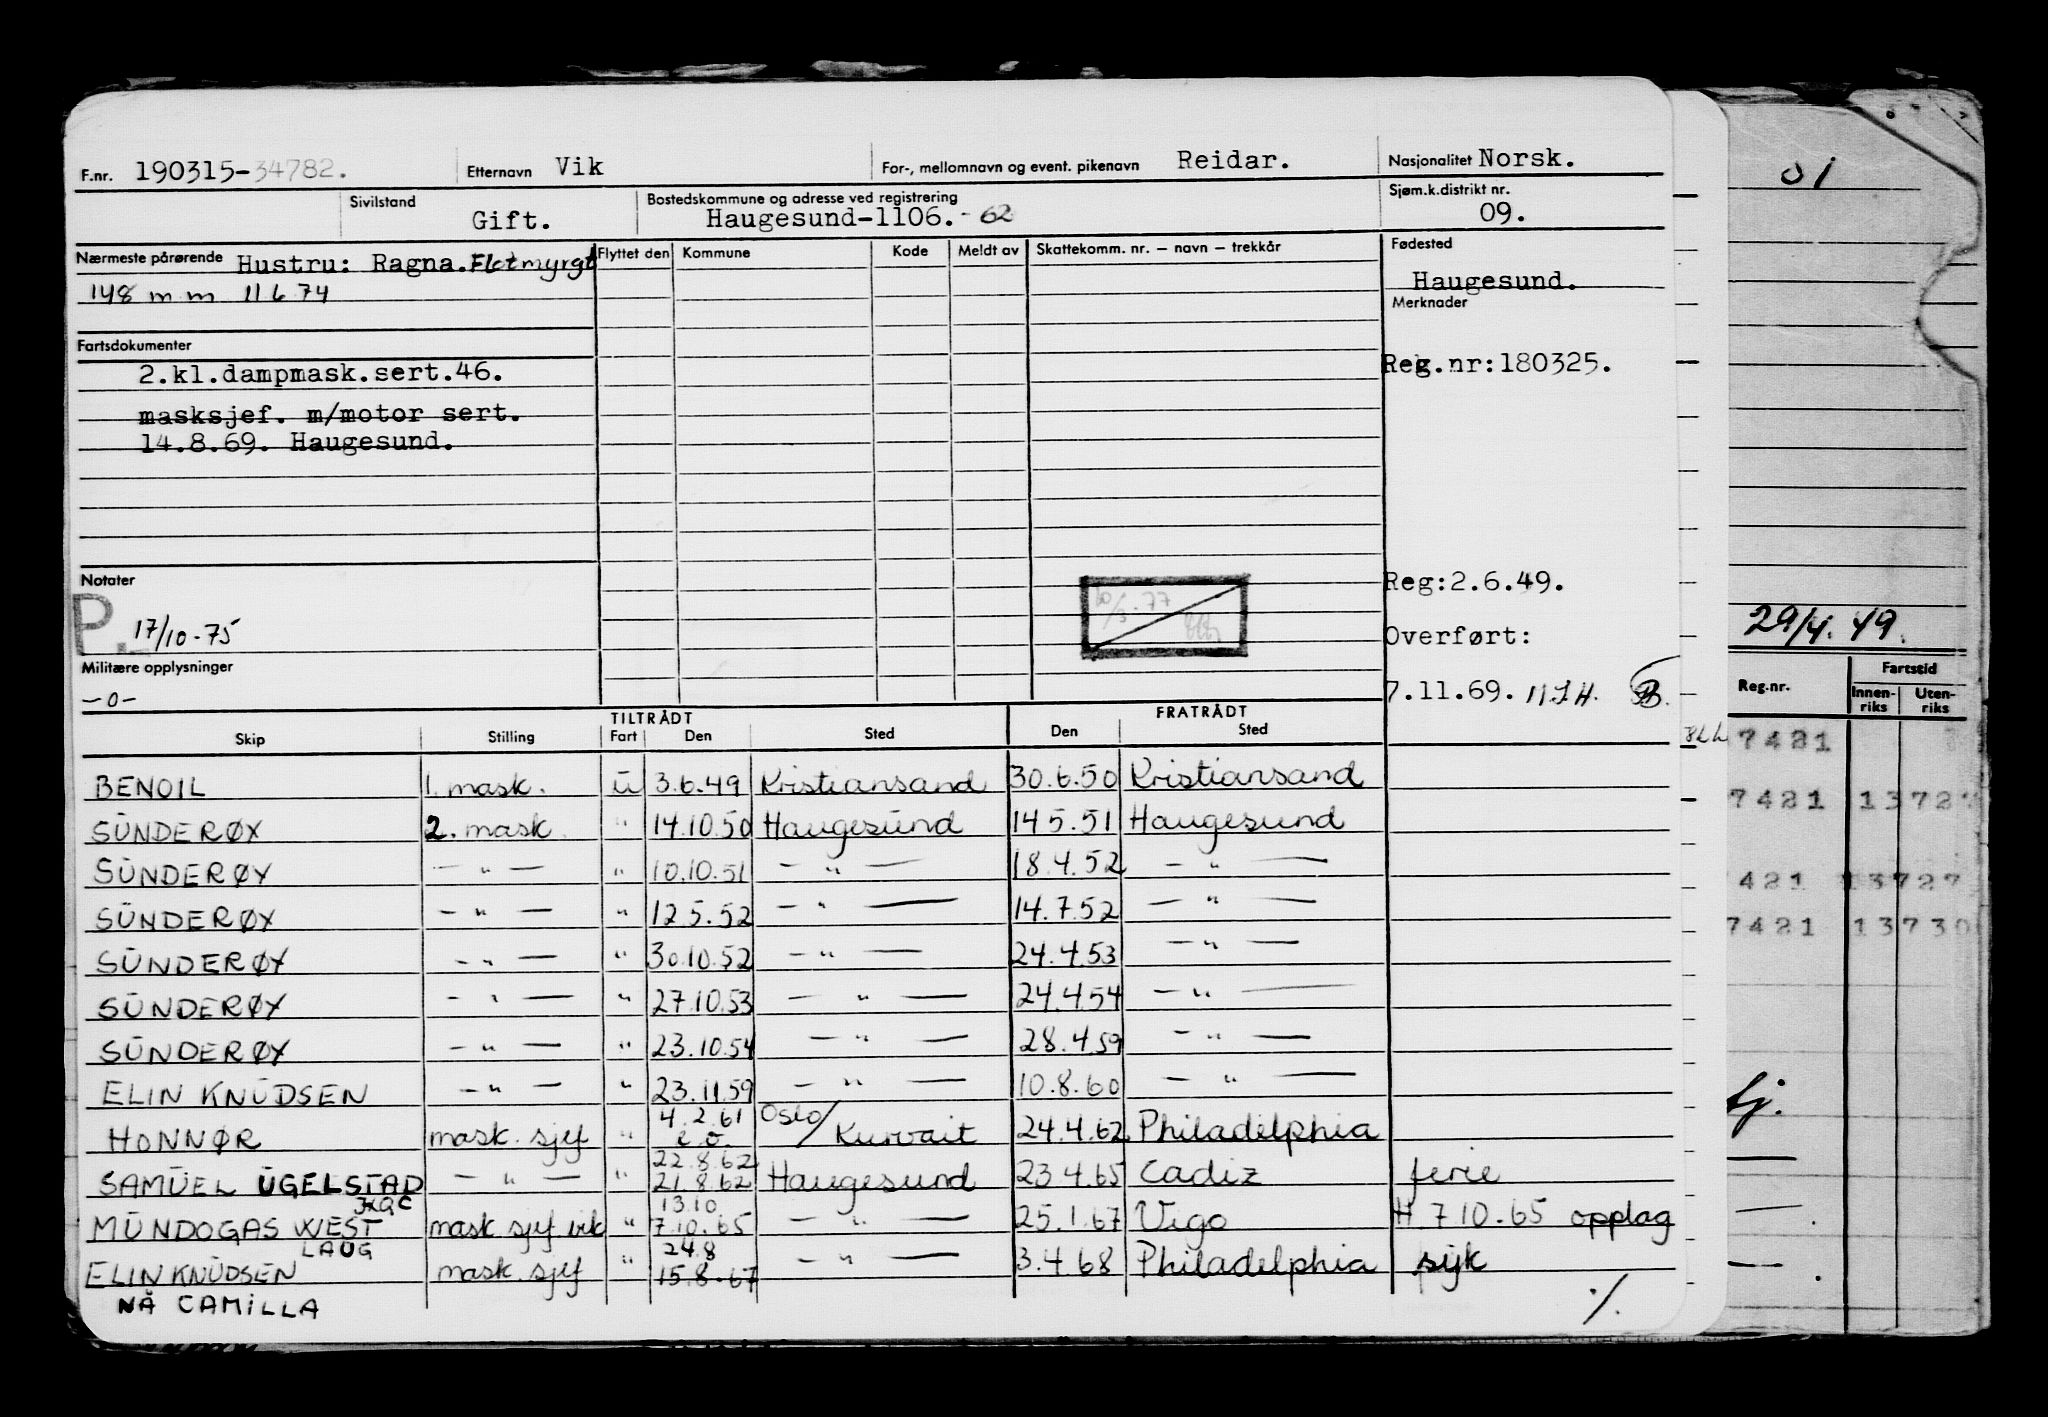 F.nr. 190315-34782. Etternavn Vik For-, mellomnavn og event. pikenavn Reidar. Nasjonalitet Norsk.
Sivilstand Gift. Bostedskommune og adresse ved registrering Haugesund-1106.-62 Sjøm.k.distrikt nr. 09.
Nærmeste pårørende Hustru: Ragna. Flotmyrgt Flyttet den Kommune Kode Meldt av Skattekomm. nr. – navn – trekkår Fødested
148 m m 11 6 74 Haugesund.
Merknader
Fartsdokumenter
2.kl.dampmask.sert.46. Reg.nr:180325.
masksjef. m/motor sert.
14.8.69. Haugesund.
Notater Reg:2.6.49.
P. 17/10-75 Overført:
Militære opplysninger
-0- 7.11.69. 11JH.
TILTRÅDT FRATRÅDT
Skip Stilling Fart Den Sted Den Sted
BENOIL 1. mask. u 3.6.49 Kristiansand 30.6.50 Kristiansand
SUNDERØY 2. mask. " 14.10.50 Haugesund 14 5.51 Haugesund
SUNDERØY — " — " 10.10.51 — " — 18.4.52 — " —
SUNDERØY — " — " 12.5.52 — " — 14.7.52 — " —
SUNDERØY — " — " 30.10.52 — " — 24.4.53 — " —
SUNDERØY — " — " 27.10.53 — " — 24.4.54 — " —
SUNDERØY — " — " 23.10.54 — " — 28.4.59 — " —
ELIN KNUDSEN — " — " 23.11.59 — " — 10.8.60 — " —
HONNØR mask. sjef " 4.2.61 Oslo/Kuwait 24.4.62 Philadelphia
22.8.62
SAMUEL UGELSTAD — " — " 21.8.62 Haugesund 23.4.65 Cadiz ferie
JXQC 13.10
MUNDOGAS WEST mask sjef vik " 7.10.65 — " — 25.1.67 Vigo H 7 10.65 opplag
LAUG 24.8
ELIN KNUDSEN mask. sjef " 15.8.67 — " — 3.4.68 Philadelphia syk
NÅ CAMILLA %
01
29/4.49.
Reg.nr. Fartstid
Innenriks Utenriks
7421
7421 13727
421 13727
7421 13730